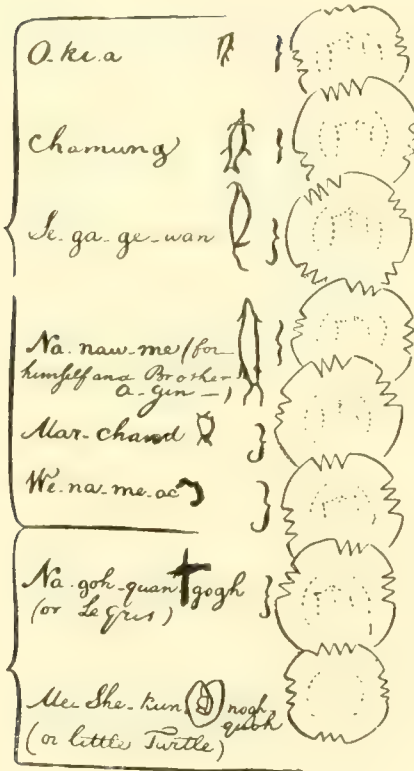 O-ki-a
Chamung
Se-ga-ge-wan
Na-naw-me (for
himself and Brother
A-gin-)
Mar-chand
We-na-me-ac
Na-goh-quan gogh
(or Le Gris)
Me-She-kun nogh
quoh
(or little Turtle)